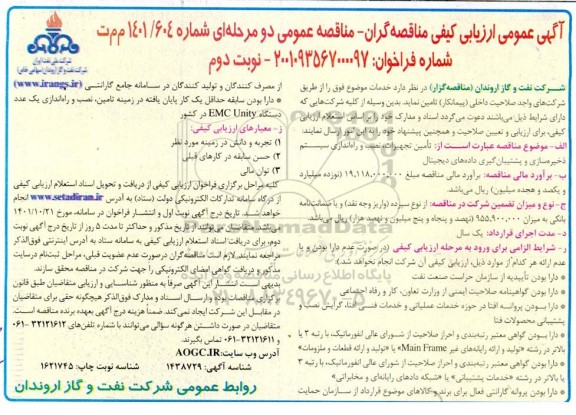 آگهی عمومی ارزیابی کیفی مناقصه‌گران- مناقصه عمومی دو مرحله‌ای شماره ۱۴۰۱/۶۰۴ م‌م‌ت
شماره فراخوان: ۲۰۰۱۰۹۳۵۶۷۰۰۰۰۹۷ - نوبت دوم
شرکت نفت و گاز اروندان (مناقصه‌گزار) در نظر دارد خدمات موضوع فوق را از طریق
شرکت‌های واجد صلاحیت داخلی (پیمانکار) تامین نماید. بدین وسیله از کلیه شرکت‌هایی که
دارای شرایط ذیل می‌باشند دعوت می‌گردد اسناد و مدارک خود را بر اساس استعلام ارزیابی
کیفی، برای ارزیابی و تعیین صلاحیت و همچنین پیشنهاد خود را به این امور ارسال نمایند:
الف- موضوع مناقصه عبارت است از: تأمین تجهیزات، نصب و راه‌اندازی سیستم
ذخیره‌سازی و پشتیبان‌گیری داده‌های دیجیتال
ب- برآورد مالی مناقصه: برآورد مالی مناقصه مبلغ ۱۹,۱۱۸,۰۰۰,۰۰۰ (نوزده میلیارد
و یکصد و هجده میلیون) ریال می‌باشد.
ج- نوع و میزان تضمین شرکت در مناقصه: از نوع سپرده (واریز وجه نقد) و یا ضمانت‌نامه
بانکی به میزان ۹۵۵,۹۰۰,۰۰۰ (نهصد و پنجاه و پنج میلیون و نهصد هزار) ریال می‌باشد.
د- مدت اجرای قرارداد: یک سال
ر- شرایط الزامی برای ورود به مرحله ارزیابی کیفی (در صورت عدم دارا بودن و یا
عدم ارائه هر کدام از موارد ذیل، ارزیابی کیفی آن شرکت انجام نخواهد شد.)
* دارا بودن تأییدیه از سازمان حراست صنعت نفت
* دارا بودن گواهینامه صلاحیت ایمنی از وزارت تعاون، کار و رفاه اجتماعی
* دارا بودن پروانه افتا در حوزه خدمات عملیاتی و خدمات فنی افتا، گرایش نصب و
پشتیبانی محصولات فتا
* دارا بودن گواهی معتبر رتبه‌بندی و احراز صلاحیت از شورای عالی انفورماتیک، با رتبه ۳ یا
بالاتر در رشته «تولید و ارائه رایانه‌های غیر Main Frame» یا «تولید و ارائه قطعات و ملزومات»
* دارا بودن گواهی معتبر رتبه‌بندی و احراز صلاحیت از شورای عالی انفورماتیک، با رتبه ۳
یا بالاتر در رشته «خدمات پشتیبانی» یا «شبکه داده‌های رایانه‌ای و مخابراتی»
* دارا بودن پروانه گارانتی فعال برای برند و کالاهای موضوع قرارداد از سازمان حمایت
از مصرف کنندگان و تولید کنندگان در سامانه جامع گارانتی (www.irangs.ir)
* دارا بودن سابقه حداقل یک کار پایان یافته در زمینه تامین، نصب و راه‌اندازی یک عدد
دستگاه EMC Unity در کشور
ز- معیارهای ارزیابی کیفی:
۱) تجربه و دانش در زمینه مورد نظر
۲) حسن سابقه در کارهای قبلی
۳) توان مالی
کلیه مراحل برگزاری فراخوان ارزیابی کیفی از دریافت و تحویل اسناد استعلام ارزیابی کیفی
از درگاه سامانه تدارکات الکترونیکی دولت (ستاد) به آدرس www.setadiran.ir انجام
خواهد شد. تاریخ درج آگهی نوبت اول و انتشار فراخوان در سامانه، مورخ ۱۴۰۱/۱۰/۲۱
می‌باشد. متقاضیان می‌توانند از تاریخ مذکور و حداکثر تا مدت ۵ روز از تاریخ درج آگهی نوبت
دوم، برای دریافت اسناد استعلام ارزیابی کیفی به سامانه ستاد به آدرس اینترنتی فوق‌الذکر
مراجعه نمایند. لازم است مناقصه‌گران درصورت عدم عضویت قبلی، مراحل ثبت‌نام درسایت
مذکور و دریافت گواهی امضای الکترونیکی را جهت شرکت در مناقصه محقق سازند.
بدیهی است انتشار این آگهی صرفا به منظور شناسایی و ارزیابی متقاضیان طبق قانون
برگزاری مناقصات بوده و ارسال اسناد و مدارک فوق‌الذکر هیچگونه حقی برای متقاضیان
در مقابل این شرکت ایجاد نمی‌کند. ضمناً هزینه درج آگهی بعهده برنده مناقصه است.
متقاضیان در صورت داشتن هرگونه سؤالی می‌توانند با شماره تلفن‌های ۳۲۱۲۱۶۱۲-۰۶۱
و ۳۲۱۲۱۶۱۱-۰۶۱ تماس حاصل نمایند.
آدرس وب سایت: AOGC.IR
شناسه آگهی: ۱۴۳۸۷۲۹ شناسه نوبت چاپ: ۱۶۲۱۷۴۵
روابط عمومی شرکت نفت و گاز اروندان